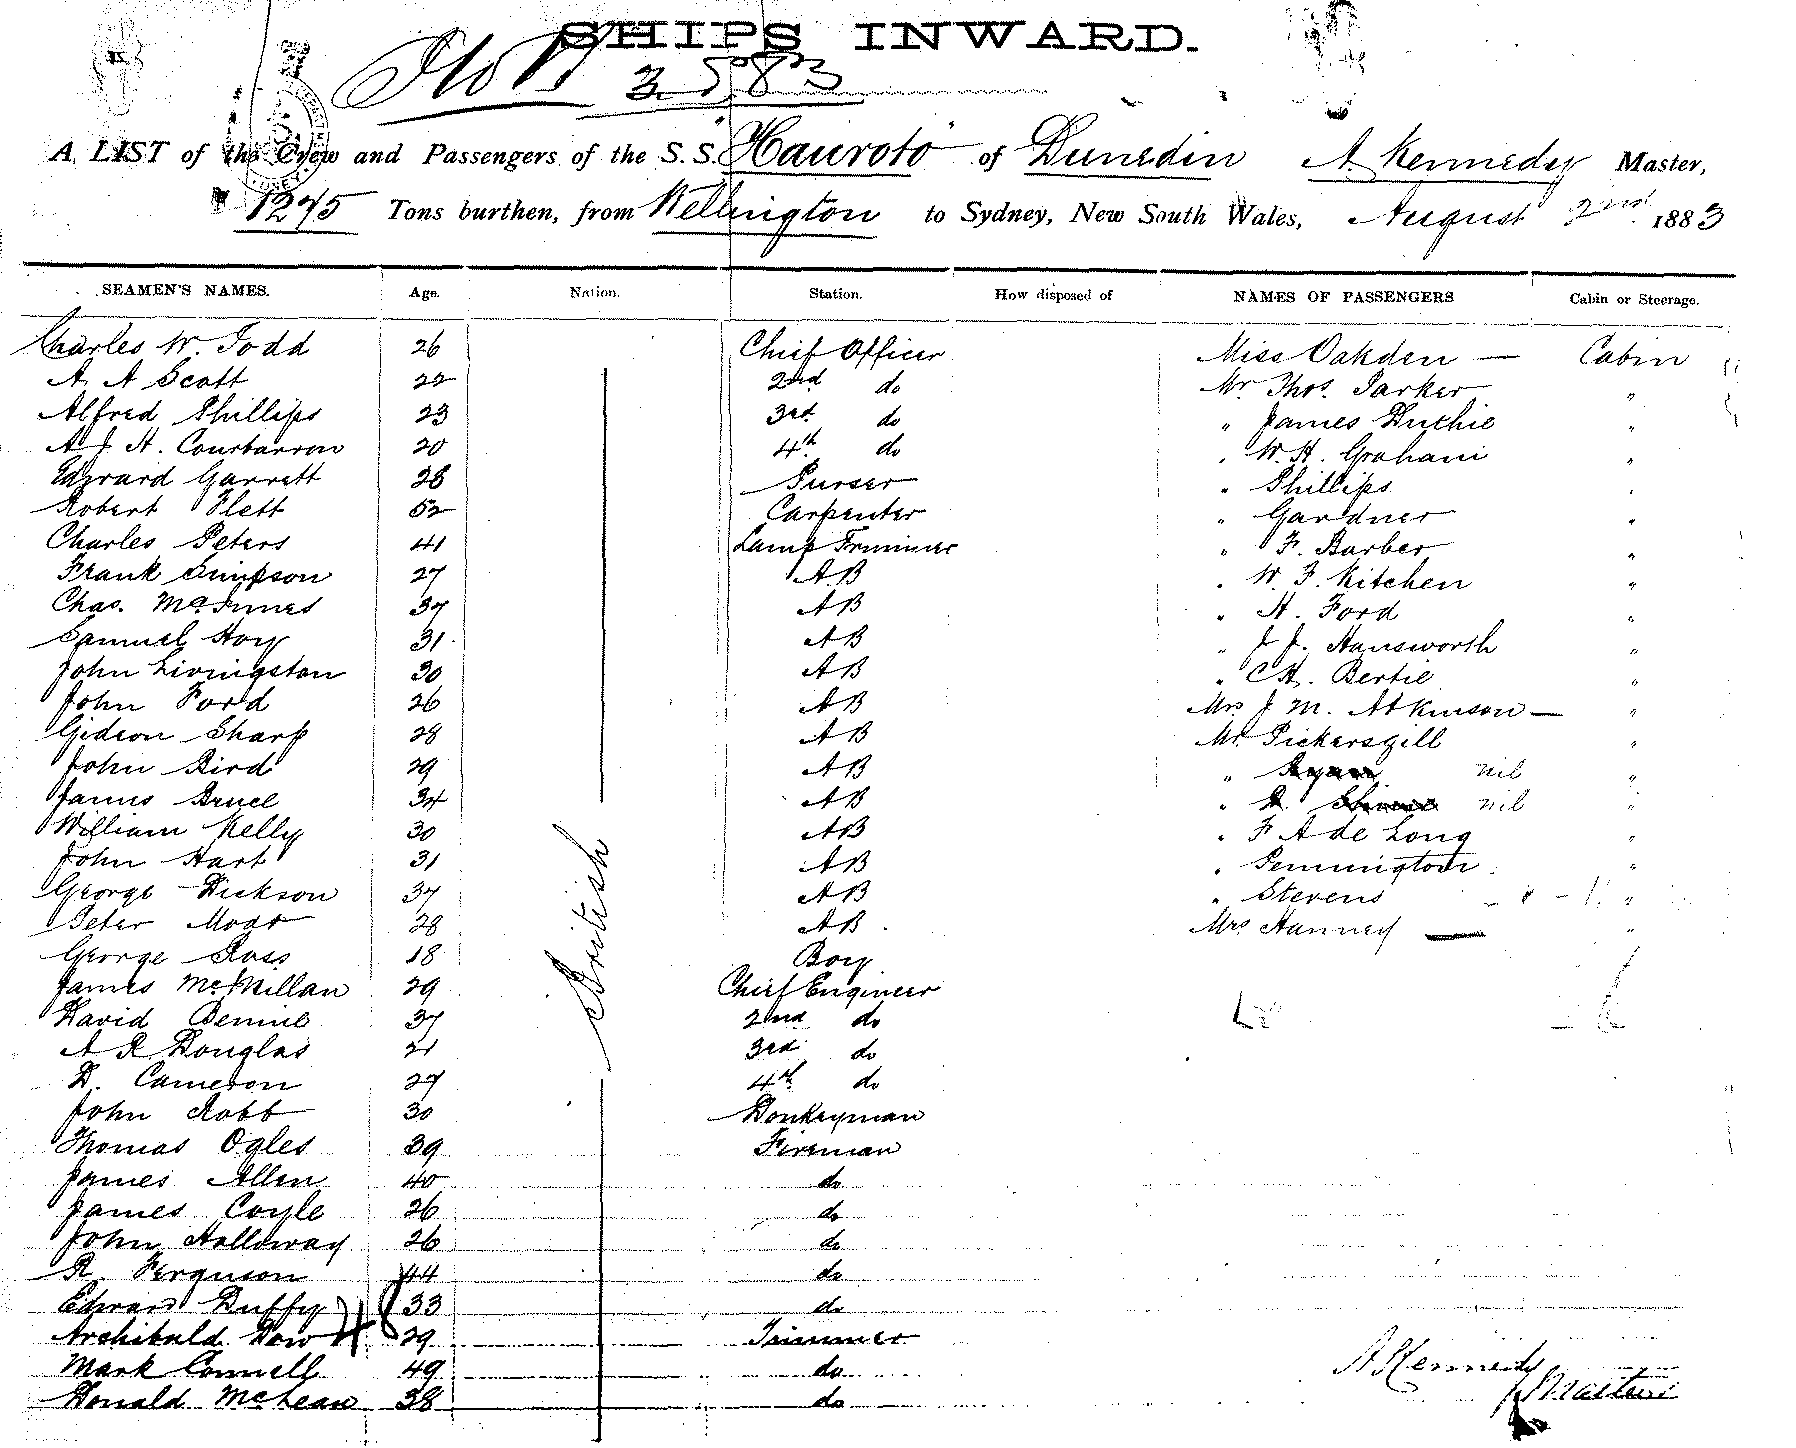 SHIPS INWARD.
3583
A LIST of the Crew and Passengers of the S.S. "Hauroto" of Dunedin A. Kennedy Master,
1275 Tons burthen, from Wellington to Sydney, New South Wales, August 2nd 1883
SEAMEN'S NAMES. Age. Nation. Station. How disposed of NAMES OF PASSENGERS Cabin or Steerage.
Charles W. Todd 26 Chief Officer Miss Oakden — Cabin
A A Scott 22 2nd do Mr Thos. Parker "
Alfred Phillips 23 3rd do " James Duthie "
A J H. Courbarron 20 4th do " W. H. Graham "
Edward Garrett 28 Purser " Phillips "
Robert Flett 52 Carpenter " Gardner "
Charles Peters 41 Lamp Trimmer " F. Barber "
Frank Simpson 27 A.B " W. F. Kitchen "
Chas. McInnes 37 AB " H. Ford "
Samuel Hoy 31 AB " J. J. Hansworth "
John Livingston 30 AB " C H. Bertie "
John Ford 26 AB Mrs J M. Atkinson — "
Gideon Sharp 28 AB Mr Pickersgill "
John Bird 29 AB " Ryan nil "
James Bruce 34 AB " nil "
William Kelly 30 AB " F A de Long "
John Hart 31 AB " Pennington "
George Dickson 37 AB " Stevens "
Peter Moar 28 AB Mrs Hanney — "
George Ross 18 Boy
British
James McMillan 29 Chief Engineer
David Bennie 37 2nd do
A R Douglas 21 3rd do
D. Cameron 27 4th do
John Robb 30 Donkeyman
Thomas Ogles 39 Fireman
James Allen 40 do
James Coyle 26 do
John Holloway 26 do
R. Ferguson 44 do
Edward Duffy 33 do
Archibald Dow 29 Trimmer
Mark Connell 49 do
Donald McLean 38 do
A Kennedy
Master